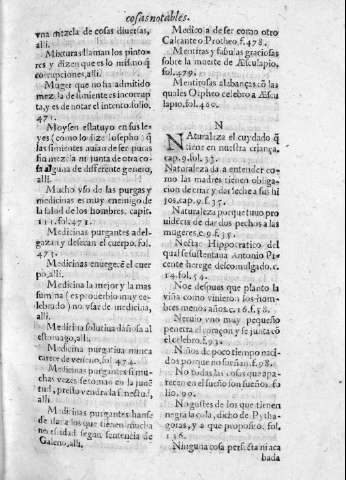 cosas notables.
vna mezcla de cosas diuersas,
alli.
Mixturas llaman los pintores
y dizen que es lo mismo q̃
corrupciones, alli.
Muger que no ha admitido
mezcla de simiente es incorrup
ta, y es de notar el intento. folio.
471.
Moysen estatuyo en sus le
yes (como lo dize Iosepho) q̃
las simientes auian de ser puras
sin mezcla ni junta de otra co
sa alguna de diferente genero,
alli.
Mucho vso de las purgas y
medicinas es muy enemigo de
la salud de los hombres. capit.
111. fol. 471.
Medicinas purgantes adel-
gazan y dessecan el cuerpo. fol.
473.
Medicinas enuegeçẽ el cuer
po, alli.
Medicina la mejor y la mas
suma (es prouerbio muy cele-
brado) no vsar de medicina,
alli.
Medicina solutiua dañosa al
estomago, alli.
Medicina purgatiua nunca
carece de veneno, fol. 474.
Medicinas purgantes si mu-
chas vezes se toman en la juuẽ
tud, presto vendra la senectud,
alli.
Medicinas purgantes hanse
de dar a los que tienen mucha
necesidad segun sentencia de
Galeno, alli.
Medico a de ser como otro
Calcante o Protheo. f. 478.
Mentiras y fabulas graciosas
sobre la muerte de Æsculapio,
fol. 479.
Mentirosas alabanças cõ las
quales Orpheo celebro a Æscu
lapio, fol. 480.
N
NAturaleza el cuydado q̃
tiene en nuestra criança,
cap. 9. fol. 33.
Naturaleza da a entender co
mo las madres tienen obliga-
cion de criar y dar leche a sus hi
jos, cap. 9. f. 35.
Naturaleza porque tuuo pro
uidẽcia de dar dos pechos a las
mugeres, c. 9. f. 35.
Nectar Hippocratico del
qual se sustentaua Antonio Pi-
cente herege descomulgado, c.
14. fol. 54.
Noe despues que planto la
viña como viuieron los hom-
bres menos años, c. 16. f. 58.
Neruio vno muy pequeño
penetra el coraçon y se junta cõ
el celebro, f. 93.
Niños de poco tiempo naci-
dos porque no sueñan, f. 98.
No todas las cosas que apare-
cen en el sueño son sueños. fo-
lio. 99.
No gustes de los que tienen
negra la cola, dicho de Pytha-
goras, y a que proposito. fol.
136.
Ninguna cosa perfecta ni aca
bada